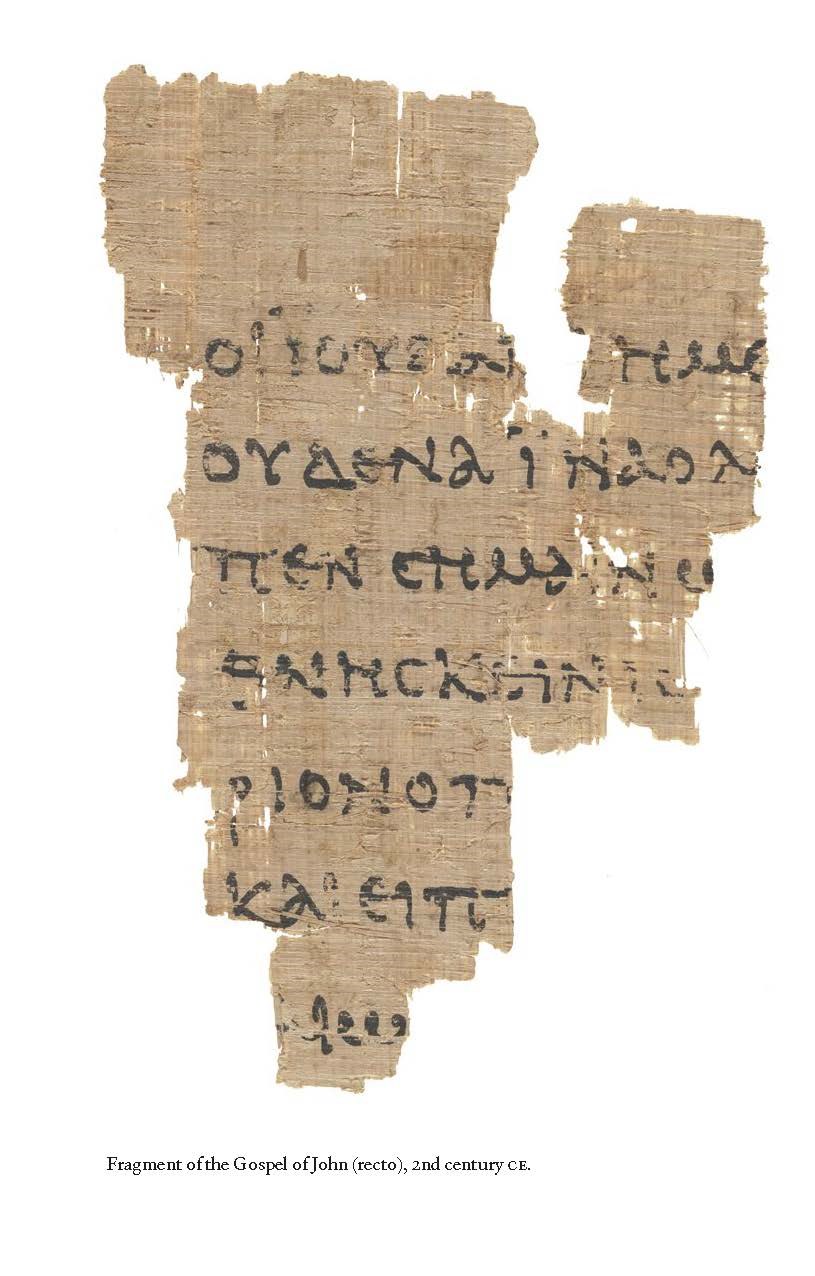 ΟΙ ΙΟΥΔΑΙ ΗΜΕ
ΟΥΔΕΝΑ ΪΝΑ Ο Λ
ΠΕΝ CΗΜΑΙΝΩ
ΘΝΗCΚΕΙΝ ΙC
ΡΙΟΝ Ο Π
ΚΑΙ ΕΙΠ
ΑΙΩ
Fragment of the Gospel of John (recto), 2nd century CE.